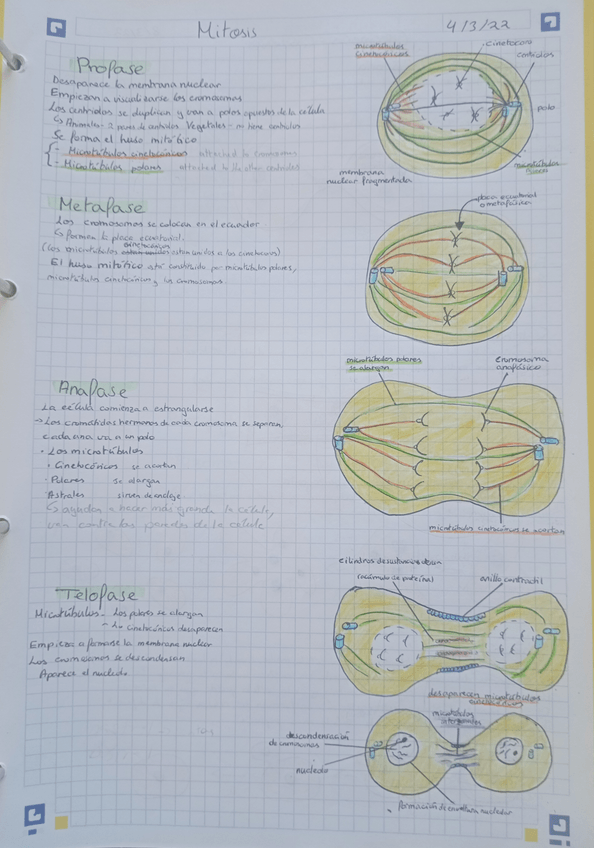 Mitosis
4/3/22
Profase
Desaparece la membrana nuclear
Empiezan a visualizarse los cromosomas
Los centriolos se duplican y van a polos opuestos de la célula
↳ Animales - 2 pares de centriolos Vegetales - no tiene centriolos
Se forma el huso mitótico
- Microtúbulos cinetocóricos attached to cromosomes
- Microtúbulos polares attached to the other centriolos
microtúbulos cinetocóricos
cinetocoro
centriolos
polo
microtúbulos
membrana
nuclear fragmentada
Metafase
Los cromosomas se colocan en el ecuador
↳ forman la placa ecuatorial.
(Los microtúbulos cinetocóricos están unidos a los cinetocoros)
El huso mitótico está constituido por microtúbulos polares,
microtúbulos cinetocóricos y los cromosomas
placa ecuatorial
o metafásica
Anafase
La célula comienza a estrangularse
→ Los cromátidas hermanas de cada cromosoma se separan,
cada una va a un polo
• Los microtúbulos
• Cinetocóricos se acortan
- Polares se alargan
Astrales sirven de anclaje
↳ ayudan a hacer más grande la célula,
van contra las paredes de la célula
microtúbulos polares
se alargan
Cromosoma
anafásico
microtúbulos cinetocóricos se acortan
Telofase
Microtúbulos - Los polares se alargan
- Los cinetocóricos desaparecen
Empieza a formarse la membrana nuclear
Los cromosomas se descondensan
Aparece el nucleolo
cilindros de sustancia densa
(acúmulo de proteína)
anillo contráctil
desaparecen microtúbulos
cinetocóricos
microtúbulos
descondensación
de cromosomas
nucleolo
formación de envoltura nuclear